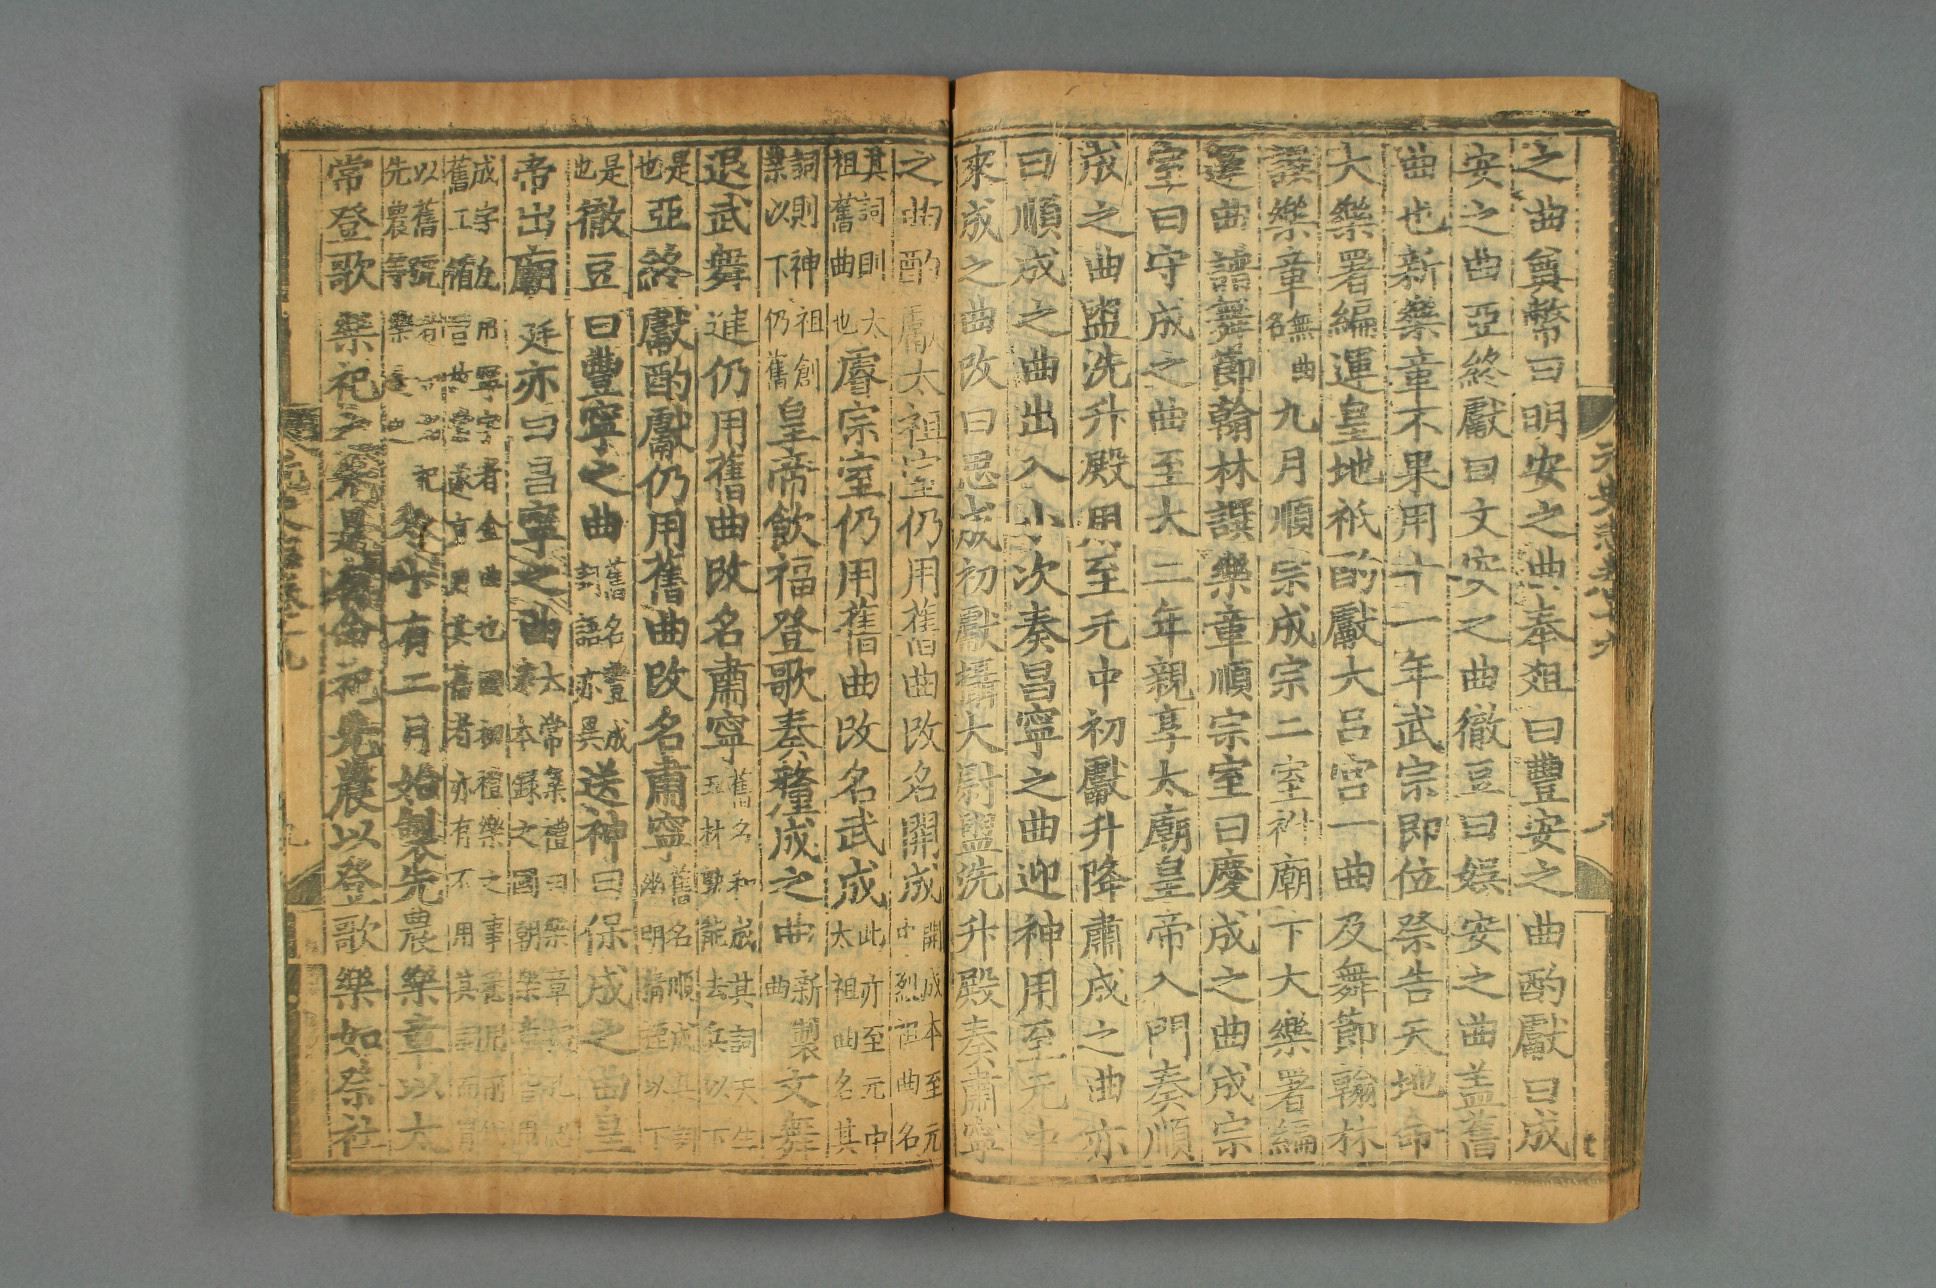 之曲奠幣曰明安之曲奉俎曰豐安之曲酌獻曰成
安之曲亞終獻曰文安之曲徹豆曰娛安之曲盖舊
曲也新樂章不果用十一年武宗即位祭告天地命
大樂署編運皇地祇酌獻大呂宮一曲及舞節翰林
譔樂章無曲名九月順宗成宗二室祔廟下大樂署編
運曲譜舞節翰林譔樂章順宗室曰慶成之曲成宗
室曰守成之曲至大二年親享太廟皇帝入門奏順
成之曲盥洗升殿用至元中初獻升降肅成之曲亦
曰順成之曲出入小次奏昌寧之曲迎神用至元中
來成之曲改曰思成初獻攝太尉盥洗升殿奏肅寧
之曲酌獻太祖室仍用舊曲改名開成開成本至元中烈祖曲名
其詞則太祖舊曲也睿宗室仍用舊曲改名武成此亦至元中太祖曲名其
詞則神祖創業以下仍舊皇帝飲福登歌奏釐成之曲新曲製文舞
退武舞進仍用舊曲改名肅寧舊名和成其詞天生五材孰能去兵以下
是也亞終獻酌獻仍用舊曲改名肅寧舊名順成其詞幽明精禋以下
是也徹豆曰豐寧之曲舊名豐成詞語亦異送神曰保成之曲皇
帝出廟廷亦曰昌寧之曲太常集禮曰樂章
成字
舊工
以舊號
先農等
冬十有二月始製先農樂章以太
常登歌樂祀之先是命祀先農以登歌樂如祭社
元史志卷十九
九